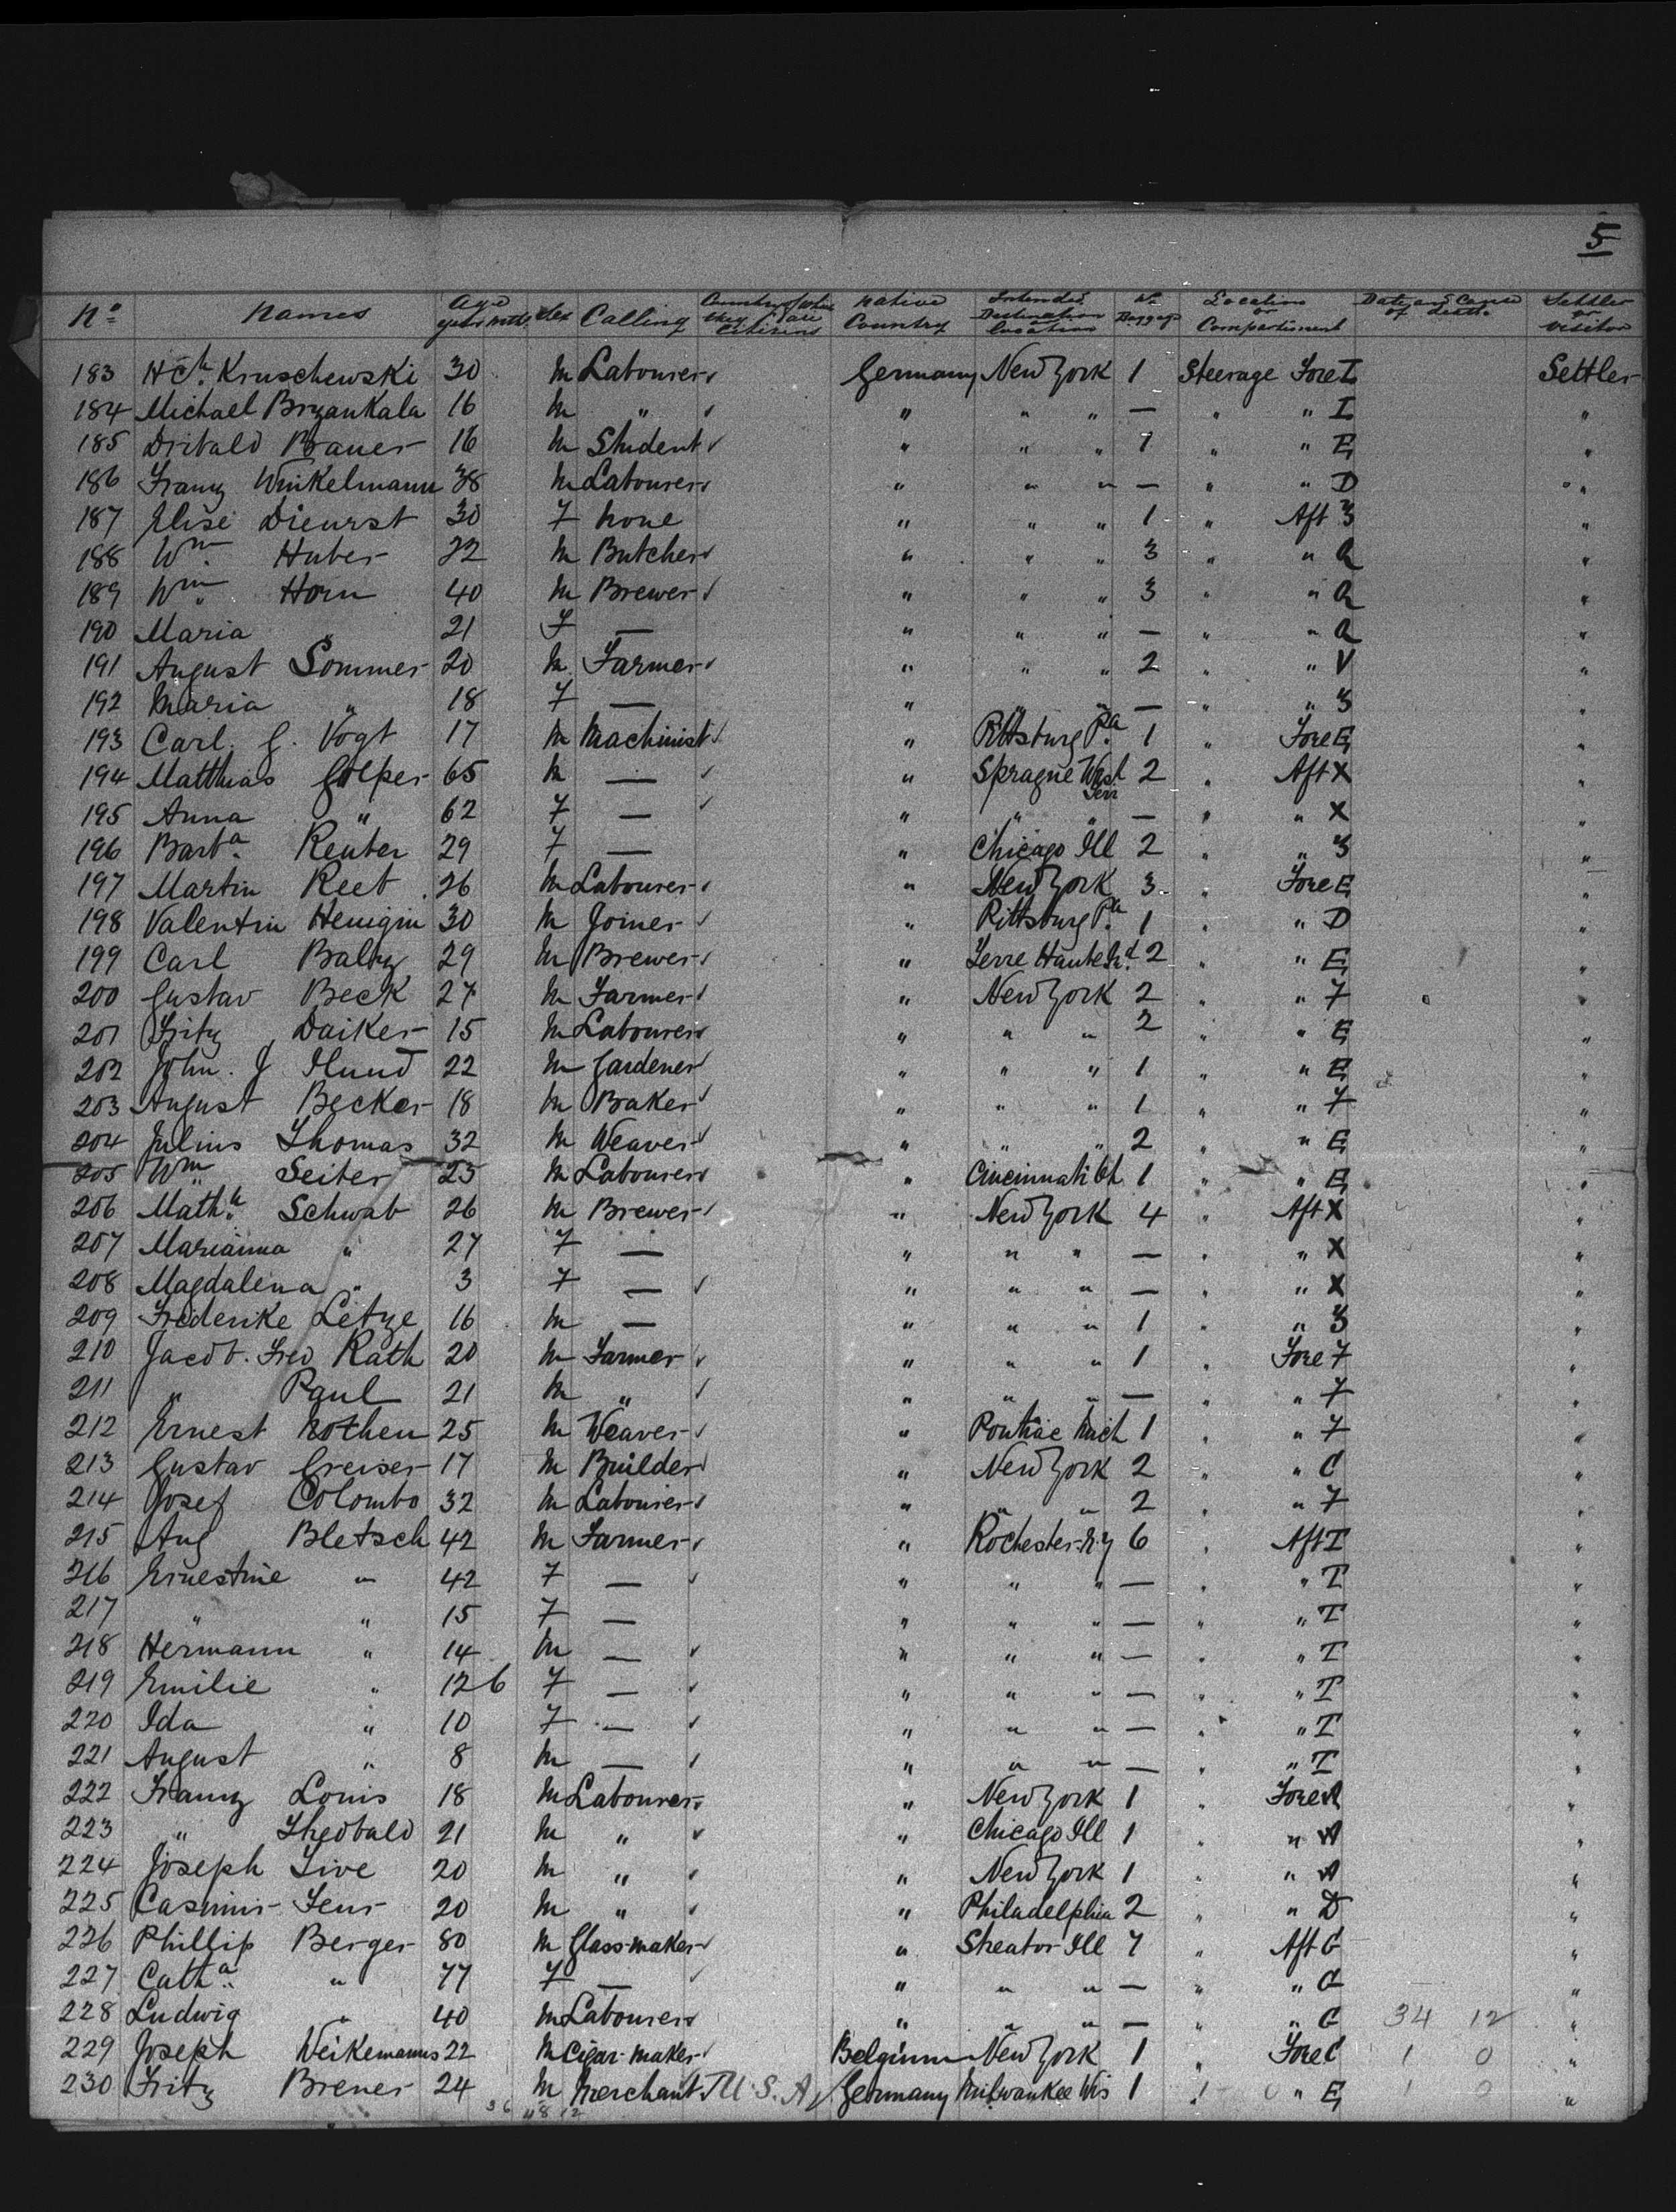 5
No Names Age years mths Sex Calling Country of which they are Citizens Native Country Intended Destination or Location No Baggage Location or Compartment Date and Cause of death. Settler or Visitor
183 Hch. Kruschewski 30 M Labourer Germany New York 1 Steerage Fore I Settler
184 Michael Bryankala 16 M " " " " — " " I "
185 Dribald Bauer 16 M Student " " " 1 " " E "
186 Franz Winkelmann 38 M Labourer " " " — " " D "
187 Elise Dieurst 30 F None " " " 1 " Aft 3 "
188 Wm. Huber 22 M Butcher " " " 3 " " Q "
189 Wm. Horn 40 M Brewer " " " 3 " " Q "
190 Maria " 21 F — " " " — " " Q "
191 August Sommer 20 M. Farmer " " " 2 " " V "
192 Maria " 18 F — " " " — " " 3 "
193 Carl. G. Vogt 17 M Machinist " Pittsburg Pa. 1 " Fore E "
194 Matthias Golper 65 M — " Sprague Wash Terr 2 " Aft X "
195 Anna " 62 F — " " " — " " X "
196 Barta. Reuter 29 F — " Chicago Ill 2 " " 3 "
197 Martin Reet 26 M Labourer " New York 3 " Fore E "
198 Valentin Henigin 30 M Joiner " Pittsburg Pa. 1 " " D "
199 Carl Balzy 29 M Brewer " Terre Haute Ind. 2 " " E "
200 Gustav Beck 27 M Farmer " New York 2 " " F "
201 Fritz Daiker 15 M Labourer " " " 2 " " E "
202 John. J Hund 22 M Gardener " " " 1 " " E "
203 August Becker 18 M Baker " " " 1 " " F "
204 Julius Thomas 32 M Weaver " " " 2 " " E "
205 Wm. Seiter 23 M Labourer " Cincinnati Oh 1 " " E "
206 Mathh. Schwab 26 M Brewer " New York 4 " Aft X "
207 Marianna " 27 F — " " " — " " X "
208 Magdalena " 3 F — " " " — " " X "
209 Frederike Letze 16 M — " " " 1 " " 3 "
210 Jacob. Fred Rath 20 M Farmer " " " 1 " Fore F "
211 " Paul 21 M " " " " — " " F "
212 Ernest Rothen 25 M Weaver " Pontiac Mich 1 " " F "
213 Gustav Greiser 17 M Builder " New York 2 " " C "
214 Josef Colombo 32 M Labourer " " " 2 " " F "
215 Aug Bletsch 42 M Farmer " Rochester N.Y 6 " Aft T "
216 Ernestine " 42 F — " " " — " " T "
217 " " 15 F — " " " — " " T "
218 Hermann " 14 M — " " " — " " T "
219 Emilie " 12 6 F — " " " — " " T "
220 Ida " 10 F — " " " — " " T "
221 August " 8 M — " " " — " " T "
222 Franz Louis 18 M Labourer " New York 1 " Fore A "
223 " Theobald 21 M " " Chicago Ill 1 " " A "
224 Joseph Live 20 M " " New York 1 " " A "
225 Casimir Jens 20 M " " Philadelphia 2 " " D "
226 Phillip Berger 80 M Glass-maker " Streator Ill 7 " Aft C "
227 Catha. " 77 F — " " " — " " C "
228 Ludwig " 40 M Labourer " " " — " " C 34 12 "
229 Joseph Weikemanns 22 M Cigar-maker Belgium New York 1 " Fore C 1 0 "
230 Fritz Brener 24 M Merchant U.S.A Germany Milwaukee Wis 1 " " E 1 0 "
36 48 12